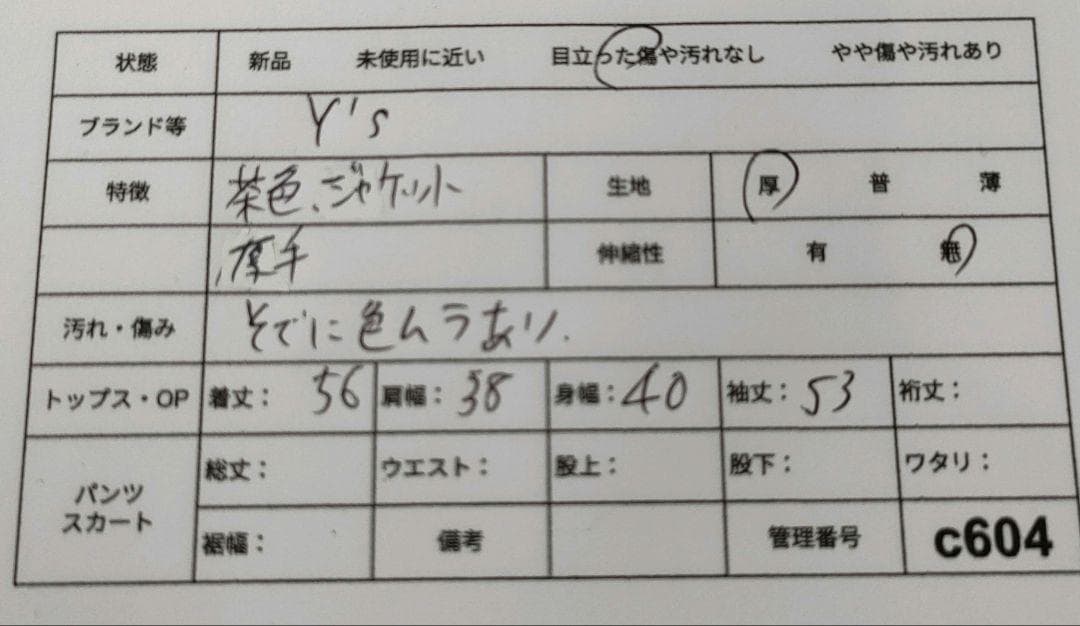 状態 新品 未使用に近い 目立った傷や汚れなし やや傷や汚れあり
ブランド等 Y's
特徴 茶色、ジャケット 生地 厚 普 薄
厚手 伸縮性 有 無
汚れ・傷み そでに色ムラあり.
トップス・OP 着丈: 56 肩幅: 38 身幅: 40 袖丈: 53 裄丈:
パンツ スカート 総丈: ウエスト: 股上: 股下: ワタリ:
裾幅: 備考 管理番号 c604